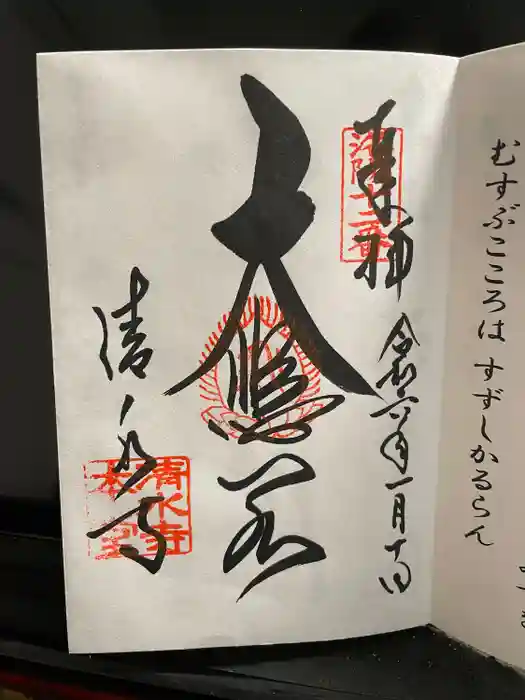 むすぶこころは すずしかるらん
奉拝 令和六年一月十日
洛陽十二番
大悲閣
清水寺
清水寺
本堂